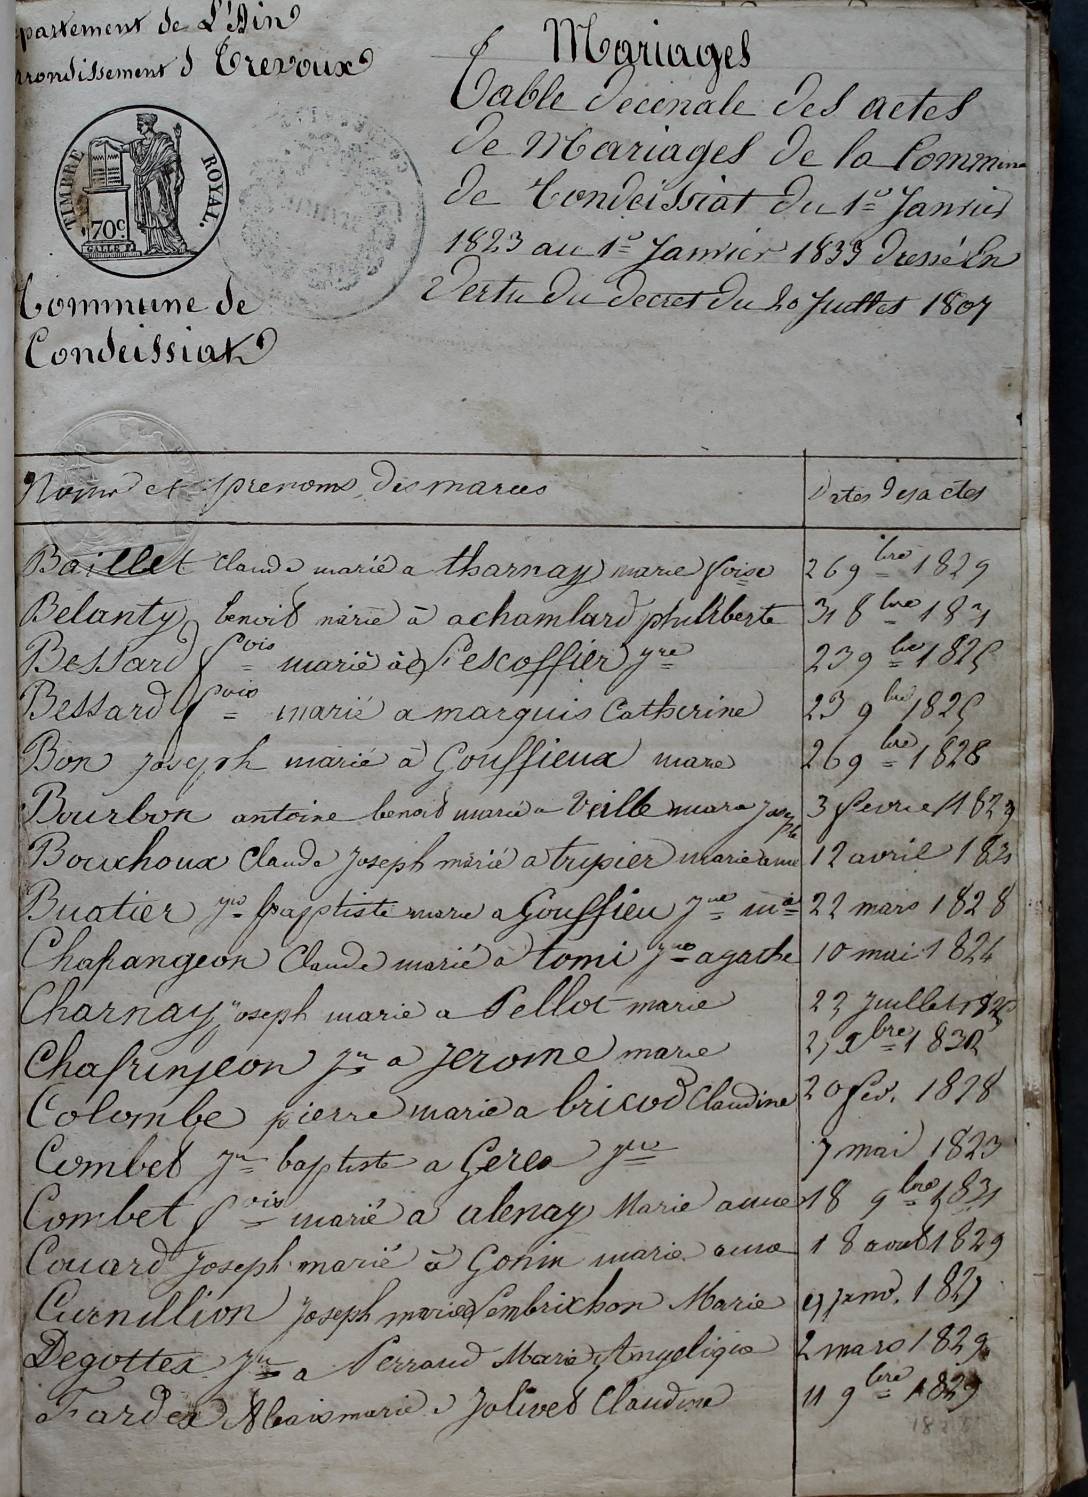 partement de L'Ain
rrondissement d Trevoux
TIMBRE ROYAL.
70c
Commune de
Condeissiat
Mariages
Table decenale des actes
de Mariages de la Commune
de Condeissiat du 1er Janvier
1823 au 1er Janvier 1833 dressé En
Vertu du decret du 20 Juillet 1807
Noms et prenoms des mariés
Dates des actes
Baillet Claude marié a tharnay marie foise 26 9bre 1829
Belanty benoit marié à achamlard philiberte 31 8bre 1831
Bessard fois marié à escoffier jne 23 9bre 1825
Bessard fois marié a marquis Catherine 23 9bre 1825
Bon joseph marié à Gouffieux marie 26 9bre 1828
Bourbon antoine benoit marié a Veille marie josephte 3 fevrier 1823
Bouchoux Claude Joseph marié a tripier marie anne 12 avril 1831
Buatier jn baptiste marié a Gouffieu jne mie 22 mars 1828
Chafangeon Claude marié à tomi jne agathe 10 mai 1824
Charnay joseph marié a Pellot marie 23 Juillet
Chafrinjeon jn a Jerome marie Xbre 1832
Colombe pierre marié a bricod Claudine 20 fev. 1828
Combet jn baptiste a Gerea jne 7 mai 1823
Combet fois marié a alenay Marie anne 18 9bre 1831
Couard Joseph marié à Gonin marie anne 18 aout 1829
Curnillion Joseph marié a Sembrichon Marie janv. 1827
Degottex jn a Perraud Marie Angeliqie 2 mars 1829
Fardea Alexis marié a Jolivet Claudine 11 9bre 1829